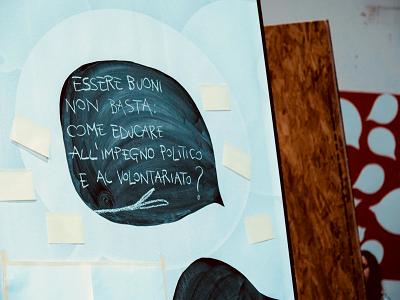 ESSERE BUONI
NON BASTA:
COME EDUCARE
ALL'IMPEGNO POLITICO
E AL VOLONTARIATO?